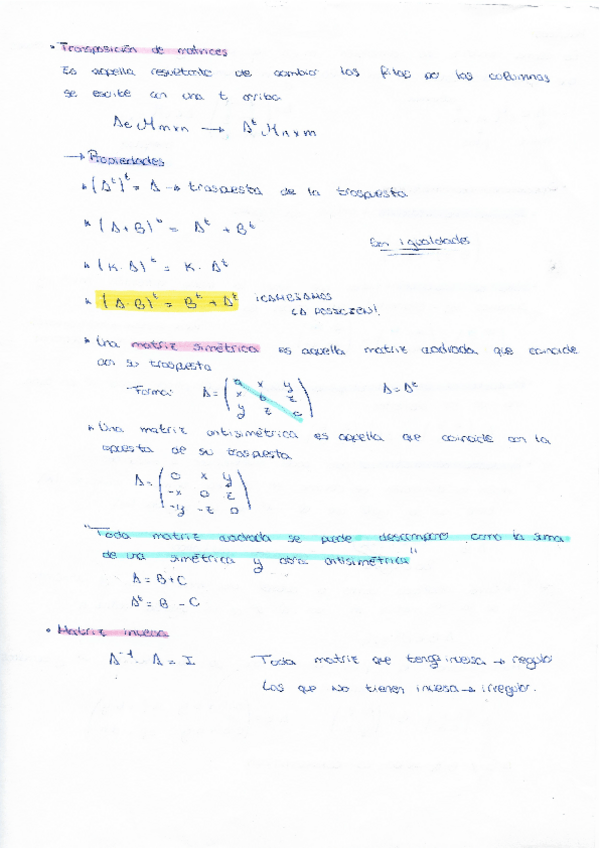 • Transposición de matrices
Es aquella resultante de cambiar las filas por las columnas
se escribe con una t arriba.
A ∈ M m×n → Aᵗ M n×m
→ Propiedades
* (Aᵗ)ᵗ = A → traspuesta de la traspuesta
* (A+B)ᵗ = Aᵗ + Bᵗ
Son igualdades
* (K·A)ᵗ = K·Aᵗ
* (A·B)ᵗ = Bᵗ + Aᵗ ¡CAMBIAMOS
LA POSICIÓN!
* Una matriz simétrica es aquella matriz cuadrada que coincide
con su traspuesta
-Forma: A = ( a x y A = Aᵗ
x b z
y z c )
* Una matriz antisimétrica es aquella que coincide con la
opuesta de su traspuesta
A = ( 0 x y
-x 0 z
-y -z 0 )
"Toda matriz cuadrada se puede descomponer como la suma
de una simétrica y otra antisimétrica"
A = B + C
Aᵗ = B - C
• Matriz inversa
A⁻¹ · A = I Toda matriz que tenga inversa → regular
Las que no tienen inversa → irregular.